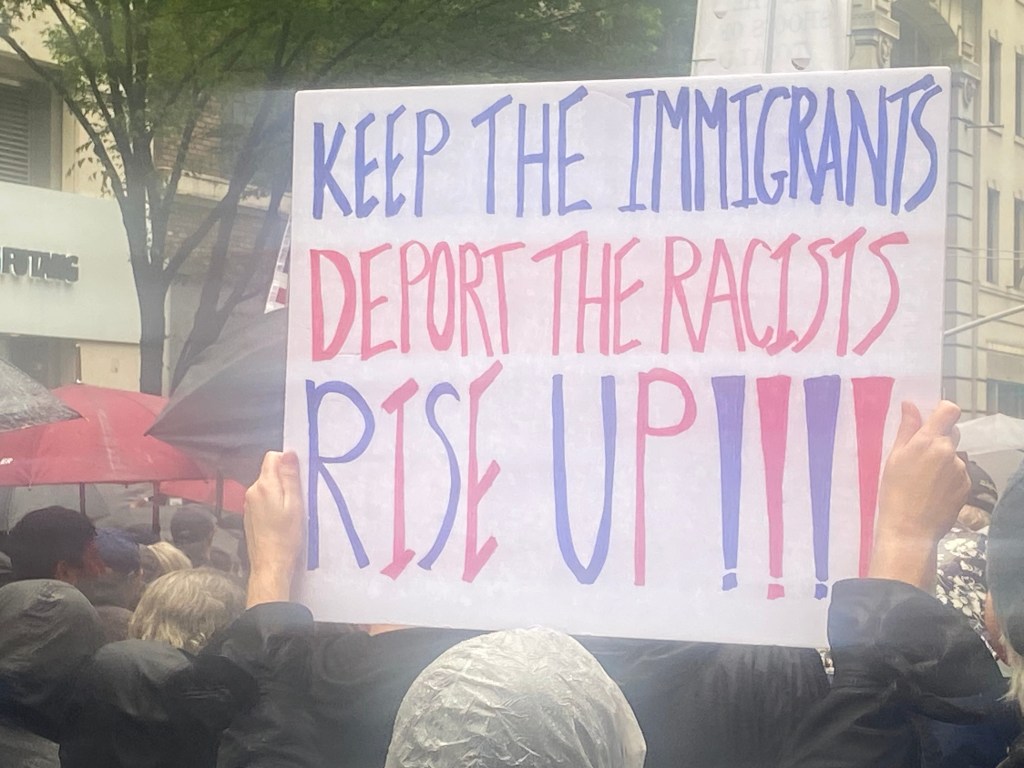 KEEP THE IMMIGRANTS
DEPORT THE RACISTS
RISE UP!!!!